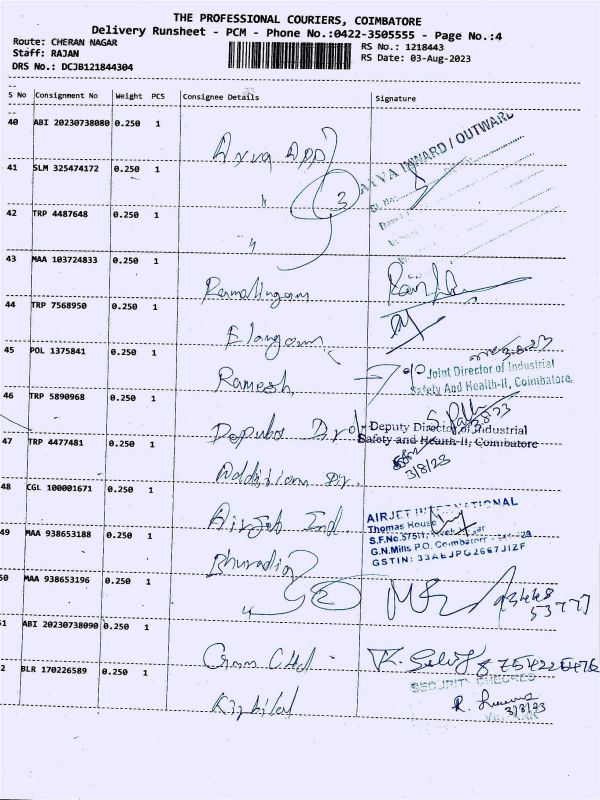 THE PROFESSIONAL COURIERS, COIMBATORE
Delivery Runsheet - PCM - Phone No.:0422-3505555 - Page No.:4
Route: CHERAN NAGAR
RS No.: 1218443
Staff: RAJAN
RS Date: 03-Aug-2023
DRS No.: DCJB121844304
S No Consignment No Weight PCS Consignee Details Signature
40 ABI 20230738080 0.250 1
AIVA INWARD / OUTWARD
41 SLM 325474172 0.250 1
" 3
42 TRP 4487648 0.250 1
"
43 MAA 103724833 0.250 1
Ramalingam
44 TRP 7568950 0.250 1
Elangovan
3.8.23
45 POL 1375841 0.250 1
Ramesh
Joint Director of Industrial
Safety And Health-II, Coimbatore.
46 TRP 5890968 0.250 1
3.8.23
Deputy Director of Industrial
Safety and Health-II, Coimbatore
47 TRP 4477481 0.250 1
3/8/23
48 CGL 100001671 0.250 1
AIRJET INTERNATIONAL
Thomas House
G.N.Mills P.O. Coimbatore
GSTIN: 33AEJPG2667J1ZF
49 MAA 938653188 0.250 1
50 MAA 938653196 0.250 1
" 2
53777
51 ABI 20230738090 0.250 1
K. Selvi
52 BLR 170226589 0.250 1
SECURITY CHECKED
3/8/23